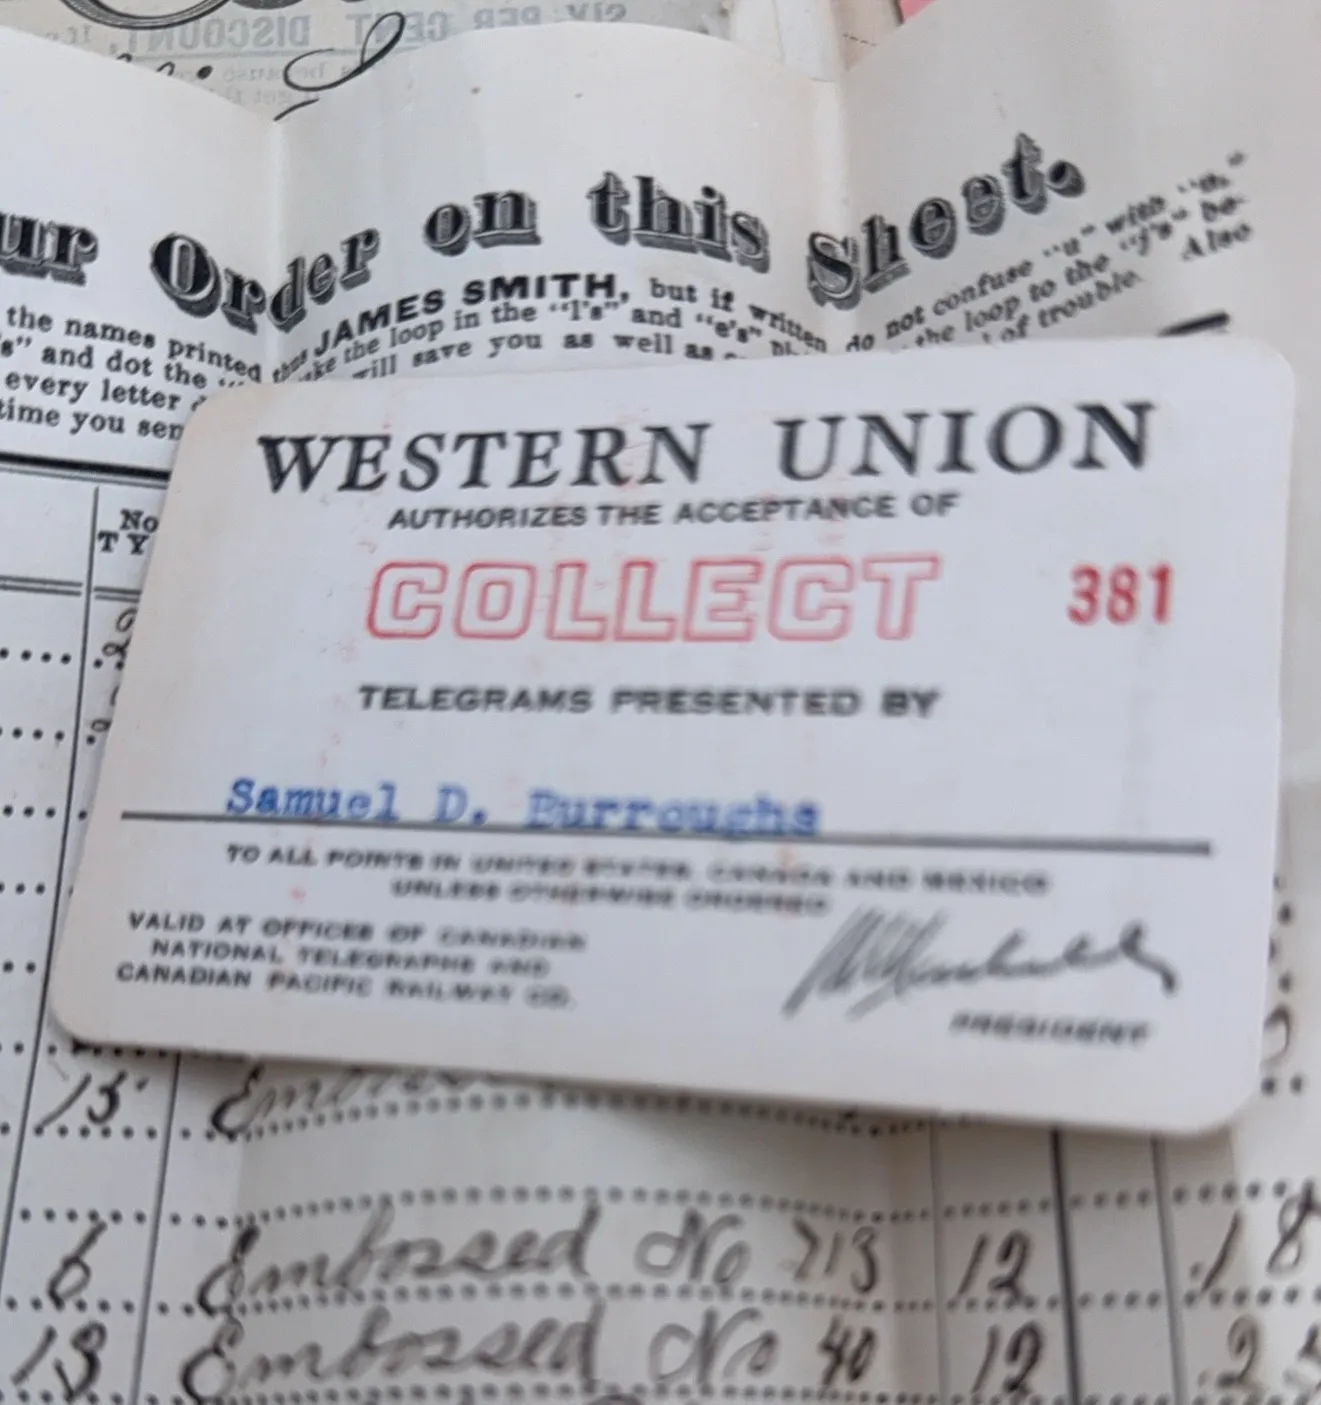 SIX PER CENT DISCOUNT,
ur Order on this Sheet.
the names printed thus JAMES SMITH, but if written do not confuse "u" with "n"
s" and dot the make the loop in the "l's" and "e's" the loop to the "f's" be-
every letter will save you as well as of trouble. Also
time you sen
No
TY
WESTERN UNION
AUTHORIZES THE ACCEPTANCE OF
COLLECT 381
TELEGRAMS PRESENTED BY
Samuel D. Burroughs
TO ALL POINTS IN UNITED STATES, CANADA AND MEXICO
UNLESS OTHERWISE ORDERED
VALID AT OFFICES OF CANADIAN
NATIONAL TELEGRAPHS AND
CANADIAN PACIFIC RAILWAY CO.
PRESIDENT
15
6 Embossed No 713 12 .18
13 Embossed No 40 12 .2